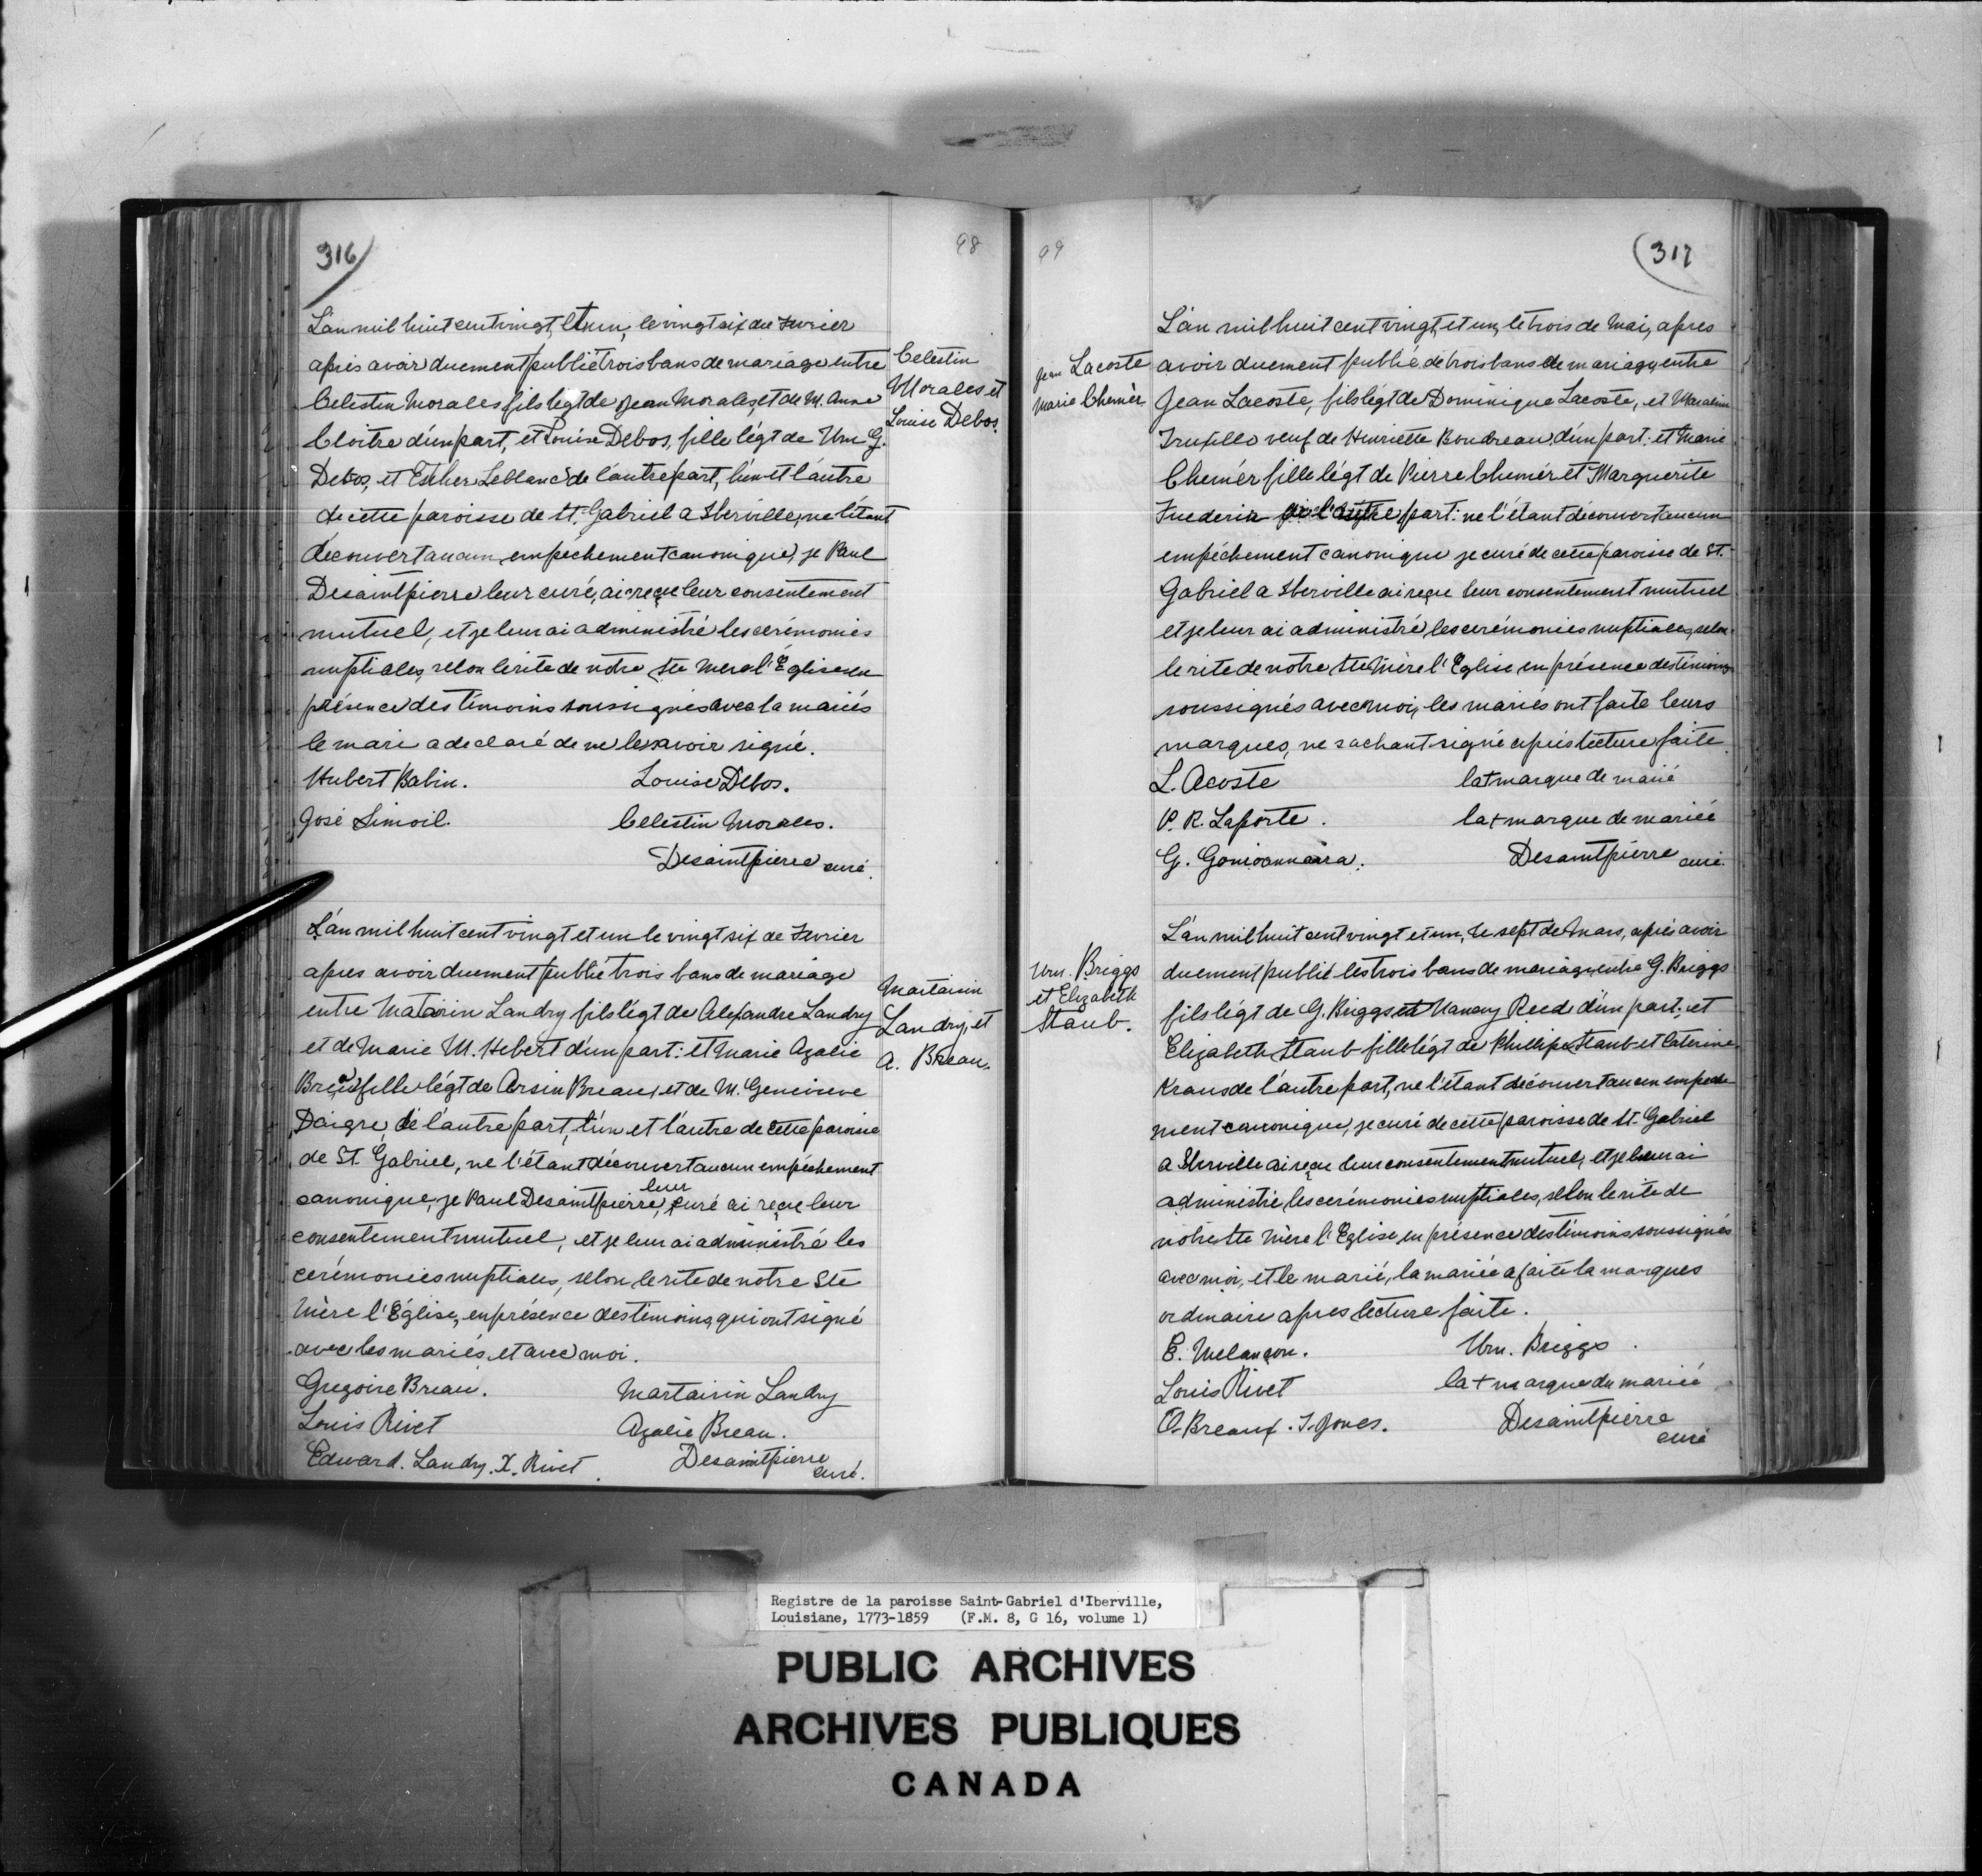 316
98
L'an mil huit cent vingt, et un, le vingt six du Fevrier
après avoir duement publié trois bans de mariage entre
Celestin Morales fils légt de Jean Morales, et de M. Anne
Cloitre d'un part, et Louise Debos, fille légt de Wm G.
Debos, et Esther Leblanc de l'autre part, l'un et l'autre
de cette paroisse de St. Gabriel a Iberville, ne l'étant
découvert aucun empechement canonique, je Paul
Desaintpierre leur curé, ai reçue leur consentement
mutuel, et je leur ai administré les cerémonies
nuptiales, selon le rite de notre Ste Mere l'Église en
présence des témoins soussignés avec la mariés
le mari a declaré de ne le savoir signé.
Hubert Babin. Louise Debos.
José Simoil. Celestin Morales.
Desaintpierre curé.
Celestin
Morales et
Louise Debos.
L'an mil huit cent vingt et un le vingt six de Fevrier
apres avoir duement publié trois bans de mariage
entre Matairin Landry fils légt de Alexandre Landry
et de Marie M. Hebert d'un part: et Marie Azalie
Breau fille légt de Arsin Breau, et de M. Genevieve
Daigre, de l'autre part, l'un et l'autre de cette paroisse
de St. Gabriel, ne l'étant découvert aucun empéchement
canonique, je Paul Desaintpierre, leur curé ai reçue leur
consentement mutuel, et je leur ai administré les
cerémonies nuptiales, selon le rite de notre Ste
Mère l'Église, en présence des temoins, qui ont signé
avec les mariés, et avec moi.
Gregoire Breau. Martairin Landry
Louis Rivet Azalie Breau.
Edward. Landry. X. Rivet. Desaintpierre
curé.
Martairin
Landry et
A. Breau.
99
317
Jean Lacoste
Marie Chemèr
L'an mil huit cent vingt, et un, le trois de Mai, apres
avoir duement publié de trois bans de mariage, entre
Jean Lacoste, fils légt de Dominique Lacoste, et
Truxillo veuf de Henriette Boudreau, d'un part: et Marie
Chemér fille légt de Pierre Chemér et Marguerite
Frederin de l'autre part: ne l'étant découvert aucun
empéchement canonique je curé de cette paroisse de St.
Gabriel a Iberville ai reçue leur consentement mutuel
et je leur ai administré, les cerémonies nuptiales, selon
le rite de notre Ste Mère l'Eglise en présence des témoins
soussignés avec moi, les mariés ont faite leurs
marques, ne sachant signé après lecture faite.
L. Acoste la + marque de marié
P. R. Laporte. la + marque de mariée
G. Desaintpierre curé.
Wm. Briggs
et Elizabeth
Staub.
L'an mil huit cent vingt et un, le sept de Mars, après avoir
duement publié les trois bans de mariage, entre G. Briggs
fils légt de G. Briggs et Nancy Reed d'un part: et
Elizabeth Staub fille légt de Phillipe Staub et Caterine
Kraus de l'autre part, ne l'étant découvert aucun empeche
ment canonique, je curé de cette paroisse de St. Gabriel
a Iberville ai reçue leur consentement mutuel, et je leur ai
administré, les cerémonies nuptiales, selon le rite de
notre Ste Mère l'Eglise, en présence des témoins soussignés
avec moi, et le marié, la mariée a faite la marques
ordinaire apres lecture faite.
E. Melançon. Wm. Briggs.
Louis Rivet la + marque du mariée
O. Breaux. I. Jones. Desaintpierre
curé
Registre de la paroisse Saint-Gabriel d'Iberville,
Louisiane, 1773-1859 (F.M. 8, G 16, volume 1)
PUBLIC ARCHIVES
ARCHIVES PUBLIQUES
CANADA